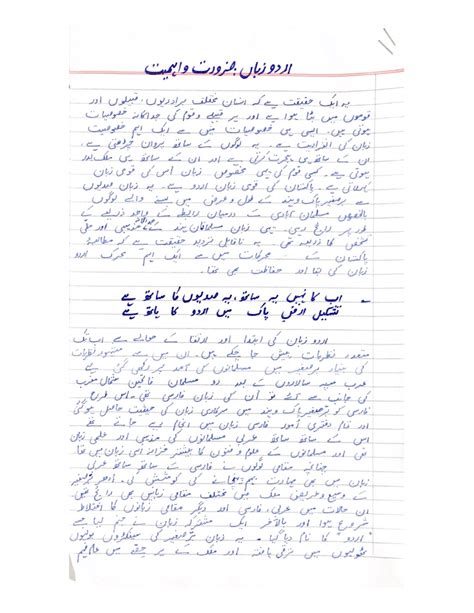 اردو زبان ضرورت و اہمیت
یہ ایک حقیقت ہے کہ انسان مختلف برادریوں، قبیلوں اور
قوموں میں بٹا ہوا ہے اور ہر قبیلے و قوم کی جداگانہ خصوصیات
ہوتی ہیں، ایسی ہی خصوصیات میں سے ایک اہم خصوصیت
زبان کی انفرادیت ہے۔ یہ لوگوں کے ساتھ پروان چڑھتی ہے،
ان کے ساتھ ہی ہجرت کرتی ہے اور ان کے ساتھ ہی
ہوتی ہے۔ کسی قوم کی یہی مخصوص زبان اس کی قومی زبان
کہلاتی ہے۔ پاکستان کی قومی زبان اردو ہے۔ یہ زبان صدیوں
سے برصغیر پاک و ہند کے طول و عرض میں بسنے والے لوگوں
بالخصوص مسلمان آبادی کے درمیان رابطے کے واحد ذریعے کے
طور پر رائج رہی۔ یہی زبان مسلمانوں کے تہذیبی اور ملی
تشخص کا ذریعہ تھی۔ یہ ناقابل تردید حقیقت ہے کہ مطالبۂ
پاکستان کے محرکات میں سے ایک اہم محرک اردو
زبان کی بقا اور حفاظت بھی تھا۔
اب کا نہیں یہ ساتھ، یہ صدیوں کا ساتھ ہے
تشکیل ارض پاک میں اردو کا ہاتھ ہے
اردو زبان کی ابتدا اور ارتقا کے حوالے سے اب تک
متعدد نظریات پیش کیے جا چکے ہیں۔ ان میں سے مشہور نظریات
کی بنیاد برصغیر میں مسلمانوں کی آمد پر رکھی گئی ہے
عرب سپہ سالاروں کے بعد جو مسلمان فاتحین شمال مغرب
کی جانب سے آئے تو ان کی زبان فارسی تھی۔ اس طرح
فارسی کو برصغیر پاک و ہند میں سرکاری زبان کی حیثیت حاصل ہوگئی
اور تمام دفتری امور فارسی زبان میں انجام دیے جانے لگے
اس کے ساتھ ساتھ عربی مسلمانوں کی مذہبی اور علمی زبان
تھی اور مسلمانوں کے علوم و فنون کا بیشتر خزانہ اسی زبان میں تھا۔
چنانچہ مقامی لوگوں نے فارسی کے ساتھ ساتھ عربی
زبان میں بھی مہارت بہم پہنچانے کی کوشش کی۔ ادھر برصغیر
کے وسیع و عریض ملک میں مختلف مقامی زبانیں بھی رائج تھیں
ان حالات میں عربی، فارسی اور دیگر مقامی زبانوں کا اختلاط
شروع ہوا اور بالآخر ایک مشترکہ زبان نے جنم لیا جسے
"اردو" کا نام دیا گیا۔ یہ زبان برصغیر کی سینکڑوں بولیوں
ٹھولیوں میں ترقی یافتہ اور ملک کے ہر حصے میں عام فہم